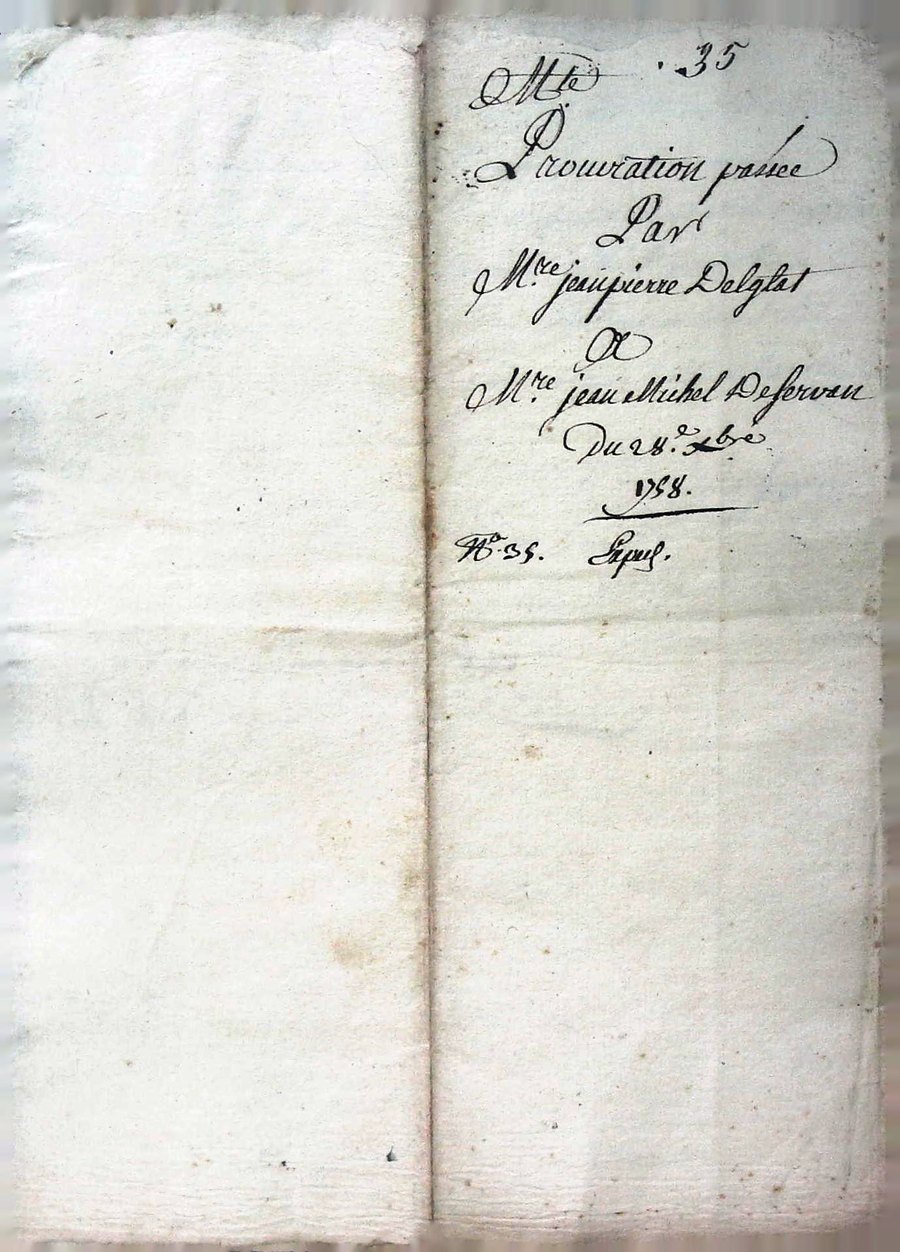 Mte . 35
Procuration passée
Par
Mre jean pierre Delglat
A
Mre jean Michel Deservan
Du 28e xbre
1758.
No. 35.